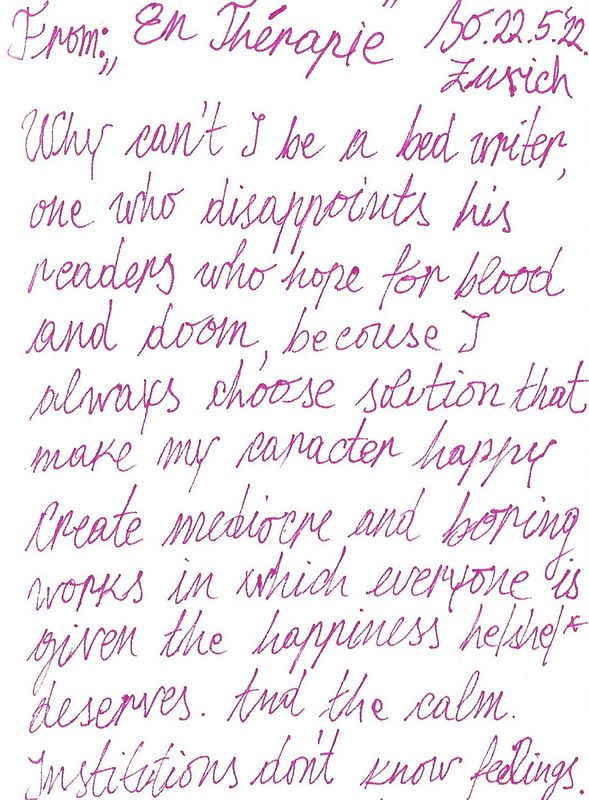 From: „En Thérapie" So. 22.5.'22.
Zurich
Why can't I be a bed writer,
one who disappoints his
readers who hope for blood
and doom, becouse I
always choose solution that
make my caracter happy
Create mediocre and boring
works in which everyone is
given the happiness he/she/*
deserves. And the calm.
Institutions don't know feelings.